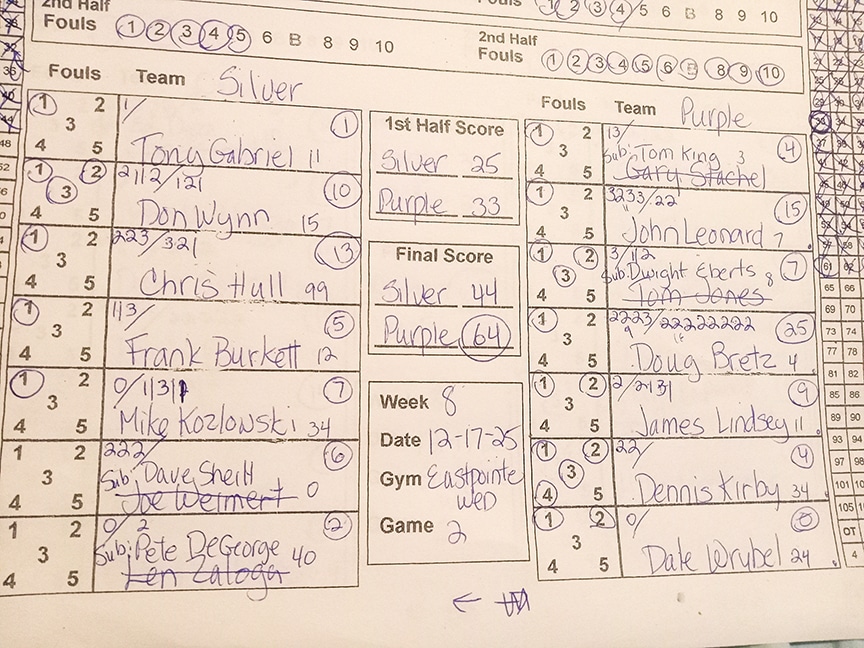 2nd Half
Fouls 1 2 3 4 5 6 B 8 9 10
Fouls 1 2 3 4 5 6 B 8 9 10
2nd Half
Fouls 1 2 3 4 5 6 B 8 9 10
Fouls Team Silver
1 2 3 4 5
1/
1
Tony Gabriel 11
1 2 3 4 5
2112/121
10
Don Wynn 15
1 2 3 4 5
223/321
13
Chris Hull 99
1 2 3 4 5
113/
5
Frank Burkett 12
1 2 3 4 5
0/1131
7
Mike Kozlowski 34
1 2 3 4 5
222/
6
Sub: Dave Sheill
Joe Weimert 0
1 2 3 4 5
0/2
2
Sub: Pete DeGeorge 40
Len Zaloga
1st Half Score
Silver 25
Purple 33
Final Score
Silver 44
Purple 64
Week 8
Date 12-17-25
Gym Eastpointe
WED
Game 2
Fouls Team Purple
1 2 3 4 5
13/
4
Sub: Tom King 3
Gary Stachel
1 2 3 4 5
3233/22
15
John Leonard 7
1 2 3 4 5
3/112
7
Sub: Dwight Eberts 8
Tom Jones
1 2 3 4 5
2223/22222222
25
Doug Bretz 4
1 2 3 4 5
2/2131
9
James Lindsey 11
1 2 3 4 5
22/
4
Dennis Kirby 34
1 2 3 4 5
0/
0
Dale Wrubel 24
65 66
69 70
73 74
77 78
81 82
85 86
89 90
93 94
97 98
101
105
OT
4